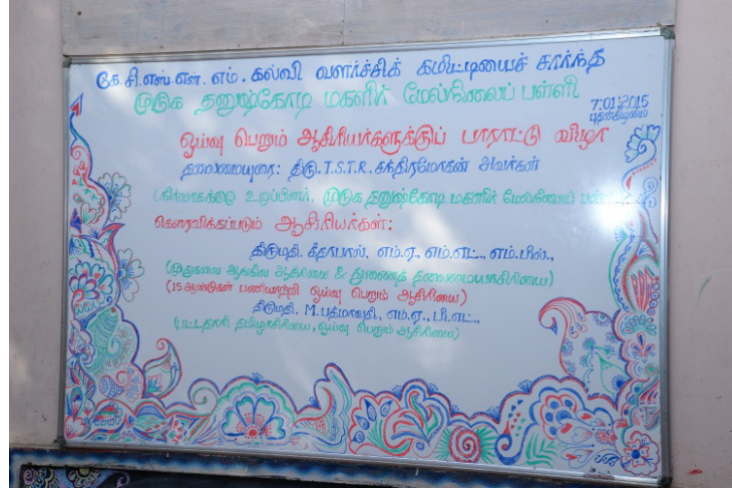 கே.சி.எஸ்.எஸ்.எம். கல்வி வளர்ச்சிக் கமிட்டியைச் சார்ந்த
முடுக தனுஷ்கோடி மகளிர் மேல்நிலைப் பள்ளி
7.01.2015
புதன்கிழமை
ஓய்வு பெறும் ஆசிரியர்களுக்குப் பாராட்டு விழா
தலைமையுரை: திரு. T.S.T.R. சந்திரமோகன் அவர்கள்
(நிர்வாகக்குழு உறுப்பினர், முடுக தனுஷ்கோடி மகளிர் மேல்நிலைப்
கௌரவிக்கப்படும் ஆசிரியர்கள்:
திருமதி. கீதாபாஸ், எம்.ஏ., எம்.எட்., எம்.பில்.,
(முதுகலை ஆங்கில ஆசிரியை & துணைத் தலைமையாசிரியை)
(15 ஆண்டுகள் பணியாற்றி ஓய்வு பெறும் ஆசிரியை)
திருமதி. M. பத்மாவதி, எம்.ஏ., பி.எட்.,
(பட்டதாரி தமிழாசிரியை, ஓய்வு பெறும் ஆசிரியை)